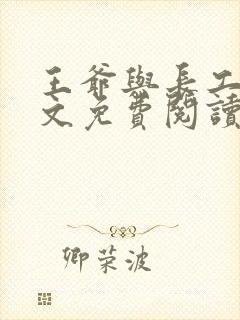 王爺與長工
文免費閱讀
卿荣波